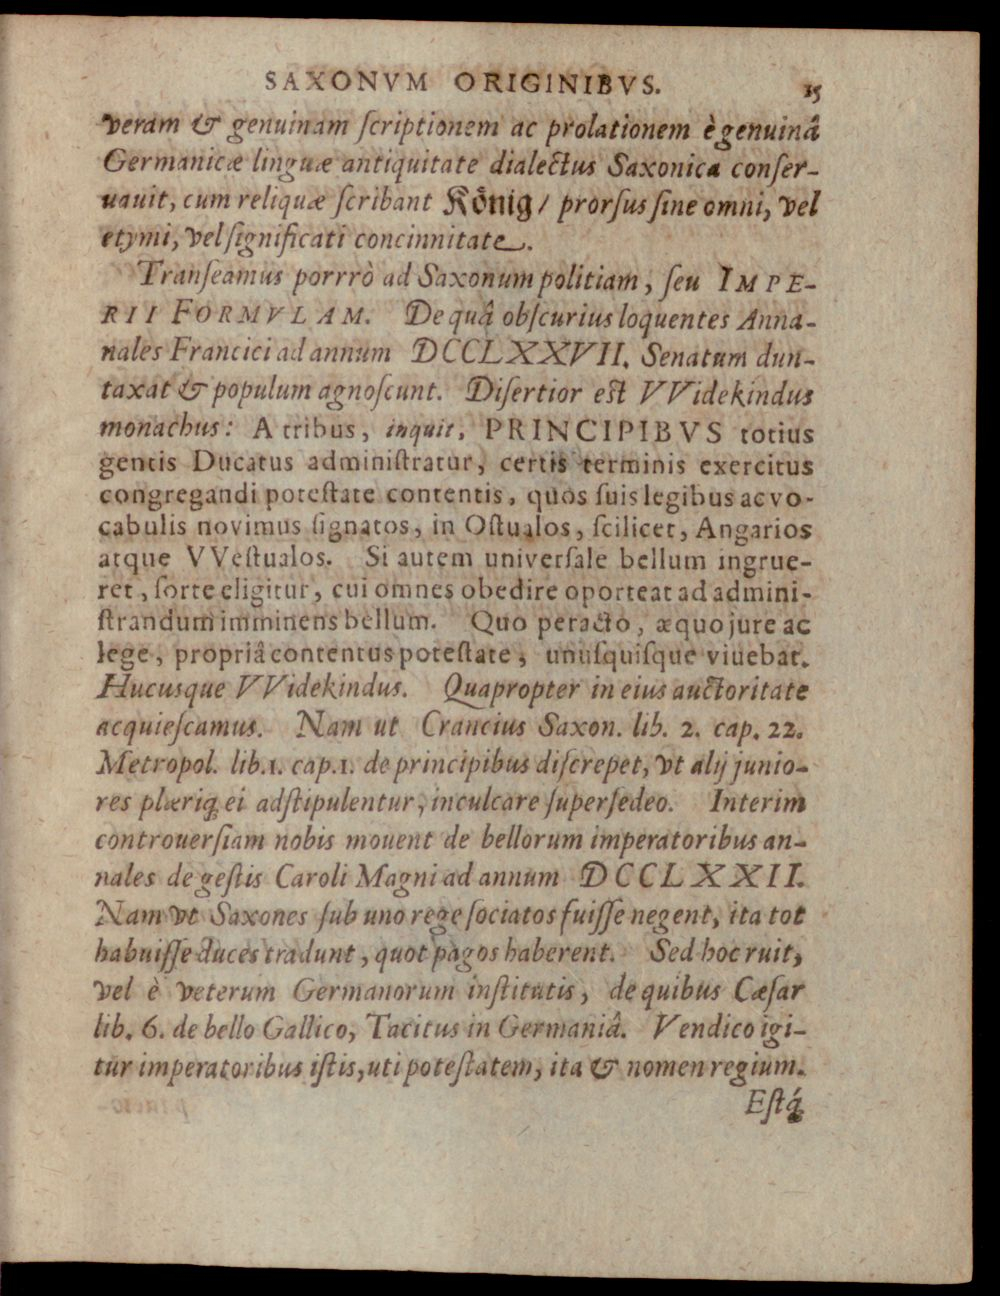 SAXONVM ORIGINIBVS. 15
veram & genuinam ſcriptionem ac prolationem è genuinâ
Germanicæ linguæ antiquitate dialectus Saxonica conſer-
uauit, cum reliquæ ſcribant König/ prorſus ſine omni, vel
etymi, vel ſignificati concinnitate.
Tranſeamus porrrò ad Saxonum politiam, ſeu IMPE-
RII FORMVLAM. De quâ obſcurius loquentes Anna-
nales Francici ad annum DCCLXXVII. Senatum dun-
taxat & populum agnoſcunt. Diſertior eſt VVidekindus
monachus: A tribus, inquit, PRINCIPIBVS totius
gentis Ducatus adminiſtratur, certis terminis exercitus
congregandi poteſtate contentis, quos ſuis legibus ac vo-
cabulis novimus ſignatos, in Oſtualos, ſcilicet, Angarios
atque VVeſtualos. Si autem univerſale bellum ingrue-
ret, ſorte eligitur, cui omnes obedire oporteat ad admini-
ſtrandum imminens bellum. Quo peracto, æquo jure ac
lege, propriâ contentus poteſtate, unuſquiſque viuebat.
Hucusque VVidekindus. Quapropter in eius auctoritate
acquieſcamus. Nam ut Crancius Saxon. lib. 2. cap. 22.
Metropol. lib.1. cap.1. de principibus diſcrepet, vt alij junio-
res plæriq; ei adſtipulentur, inculcare ſuperſedeo. Interim
controuerſiam nobis mouent de bellorum imperatoribus an-
nales de geſtis Caroli Magni ad annum DCCLXXII.
Nam vt Saxones ſub uno rege ſociatos fuiſſe negent, ita tot
habuiſſe duces tradunt, quot pagos haberent. Sed hoc ruit,
vel è veterum Germanorum inſtitutis, de quibus Cæſar
lib. 6. de bello Gallico, Tacitus in Germaniâ. Vendico igi-
tur imperatoribus iſtis, uti poteſtatem, ita & nomen regium.
Eſtq́;